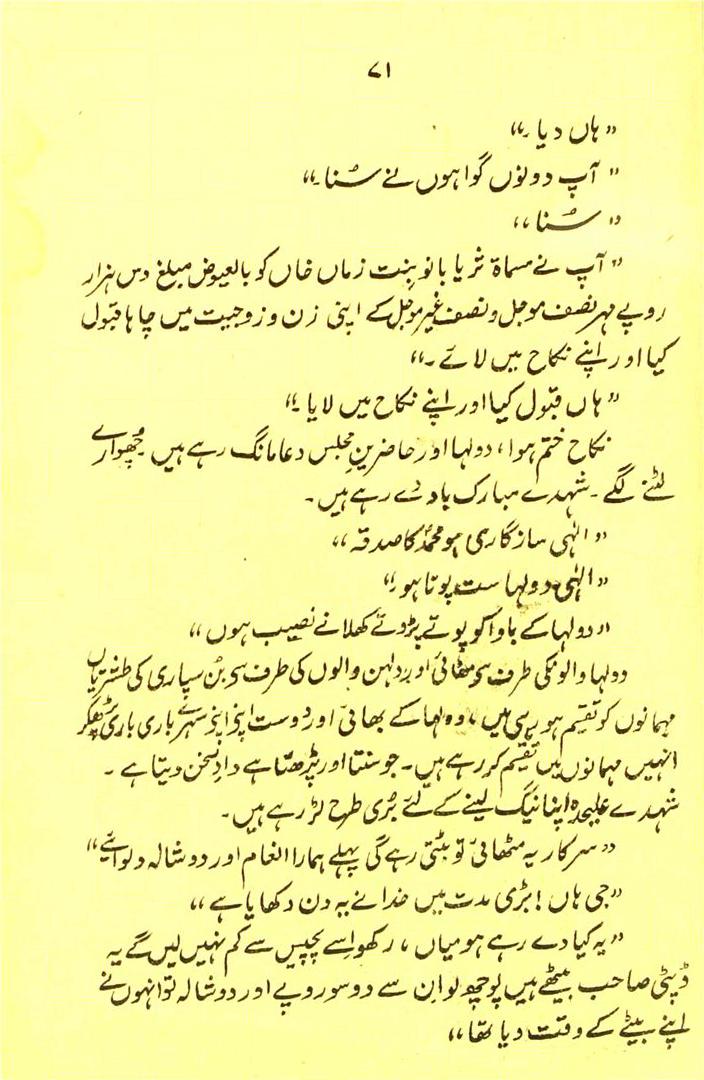 ۷۱
"ہاں دیا۔"
"آپ دونوں گواہوں نے سُنا۔"
"سُنا"
"آپ نے مسماۃ ثریا بانو بنت زماں خاں کو بالعیوض مبلغ دس ہزار
روپے مہر نصف موجل و نصف غیر موجل کے اپنی زن و زوجیت میں چاہا قبول
کیا اور اپنے نکاح میں لائے۔"
"ہاں قبول کیا اور اپنے نکاح میں لایا۔"
نکاح ختم ہوا، دولہا اور حاضرینِ مجلس دعا مانگ رہے ہیں چھوارے
لٹنے لگے۔ شہدے مبارک باد دے رہے ہیں۔
"الٰہی سازگاری ہو محمدؐ کا صدقہ"
"الٰہی دولہا ست پوتا ہو۔"
"دولہا کے باوا کو پوتے پڑوتے کھلانے نصیب ہوں"
دولہا والونکی طرف سے مٹھائی اور دلہن والوں کی طرف سے بُن سپاری کی طشتریاں
مہمانوں کو تقیم ہو رہی ہیں، دولہا کے بھائی اور دوست اپنے اپنے سہرے باری باری پڑھکر
انہیں مہمانوں میں تقیم کر رہے ہیں۔ جو سنتا اور پڑھتا ہے دادِ سخن دیتا ہے۔
شہدے علیحدہ اپنا نیگ لینے کے لئے بُری طرح لڑ رہے ہیں۔
"سرکار یہ مٹھائی تو بٹتی رہے گی پہلے ہمارا انعام اور دوشالہ دلوائیے"
"جی ہاں! بڑی مدت میں خدا نے یہ دن دکھایا ہے"
"یہ کیا دے رہے ہو میاں، رکھو اِسے پچیس سے کم نہیں لیں گے یہ
ڈپٹی صاحب بیٹھے ہیں پوچھ لو ان سے دو سو روپے اور دوشالہ تو انہوں نے
اپنے بیٹے کے وقت دیا تھا"